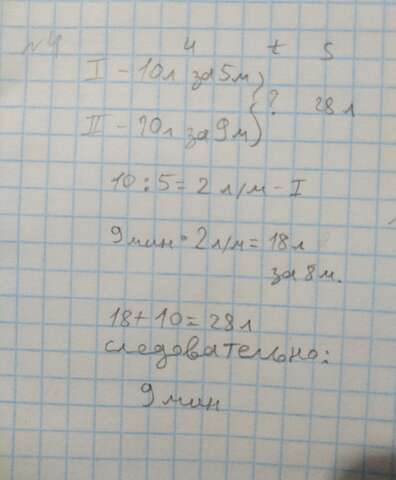 №4 u t s
I - 10л за 5м
? 28 л
II - 20л за 9м
10 : 5 = 2 л/м - I
9 мин · 2 л/м = 18 л
за 8 м.
18 + 10 = 28 л
следовательно:
9 мин